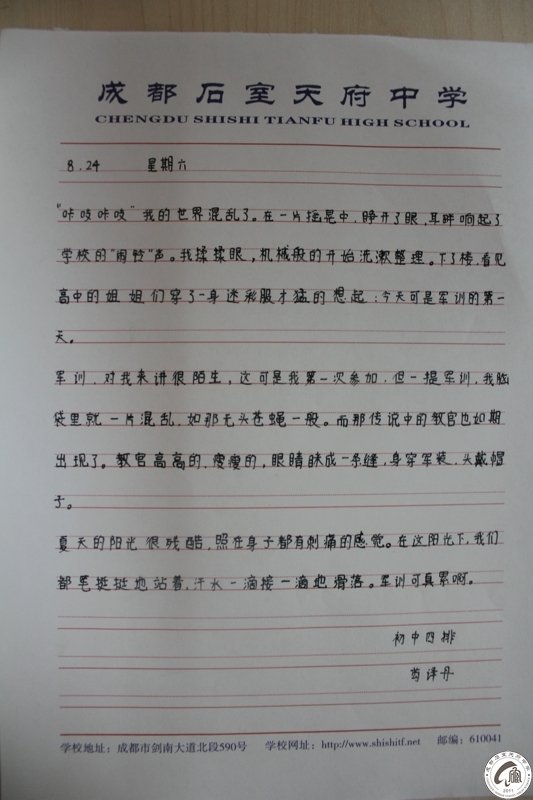 成都石室天府中学
CHENGDU SHISHI TIANFU HIGH SCHOOL
8.24 星期六
"咔吱咔吱"我的世界混乱了。在一片摇晃中,睁开了眼,耳畔响起了
学校的"闹铃"声。我揉揉眼,机械般的开始洗漱整理。下了楼,看见
高中的姐姐们穿了一身迷彩服才猛的想起:今天可是军训的第一
天。
军训,对我来讲很陌生,这可是我第一次参加,但一提军训,我脑
袋里就一片混乱,如那无头苍蝇一般。而那传说中的教官也如期
出现了。教官高高的,瘦瘦的,眼睛眯成一条缝,身穿军装,头戴帽
子。
夏天的阳光很残酷,照在身子都有刺痛的感觉。在这阳光下,我们
都笔挺挺地站着,汗水一滴接一滴地滑落。军训可真累啊。
初中四排
译丹
学校地址:成都市剑南大道北段590号 学校网址:http://www.shishitf.net 邮编:610041
2011